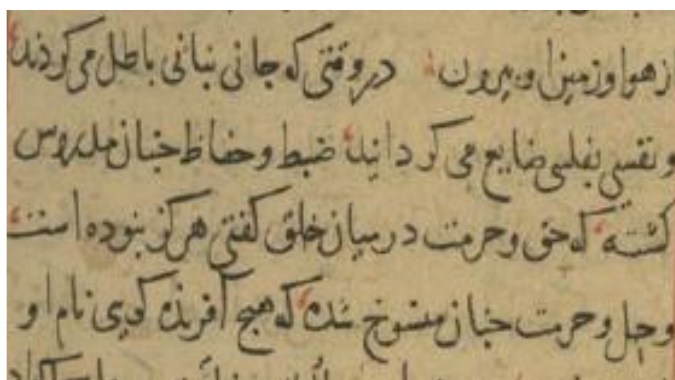 از هوا و زمین را و بیرون در وقتی که جانی بنانی باطل می کردند
و نفسی بفلسی ضایع می کردانید ضبط و حفاظ جنان مدروس
کشته که حق و حرمت در میان خلق کفتی هرکز نبوده است
و حل و حرمت جنان منسوخ شده که هیچ آفریده کویی نام او